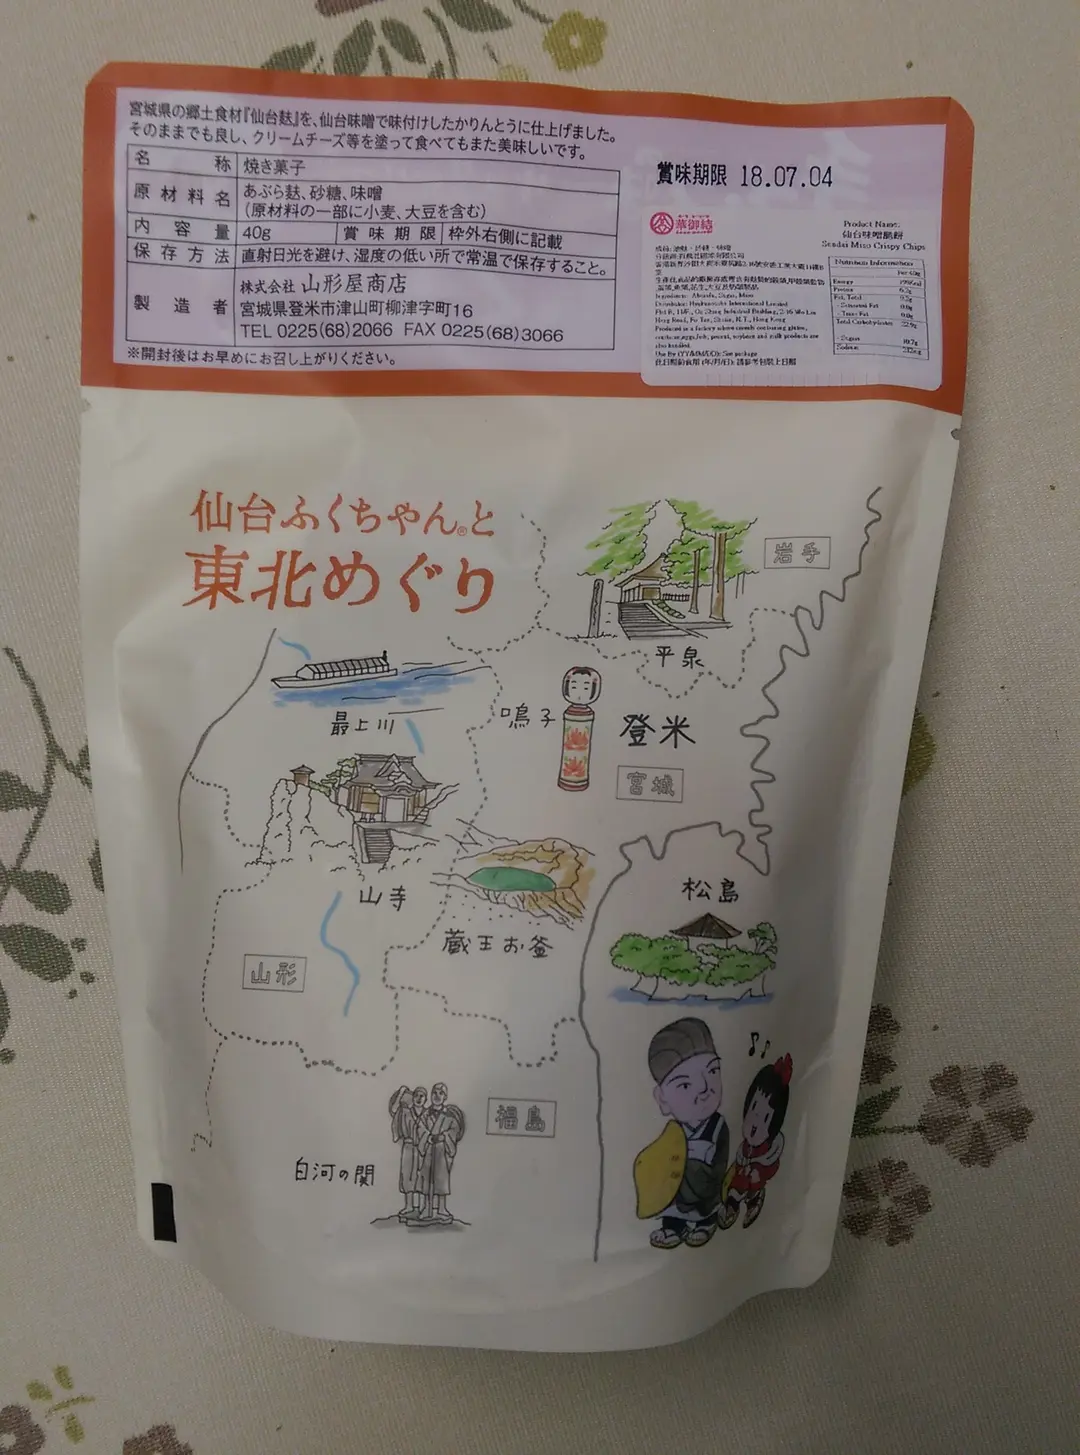 宮城県の郷土食材『仙台麸』を、仙台味噌で味付けしたかりんとうに仕上げました。
そのままでも良し、クリームチーズ等を塗って食べてもまた美味しいです。
名称 焼き菓子
原材料名 あぶら麸、砂糖、味噌
(原材料の一部に小麦、大豆を含む)
内容量 40g 賞味期限 枠外右側に記載
保存方法 直射日光を避け、湿度の低い所で常温で保存すること。
製造者 株式会社 山形屋商店
宮城県登米市津山町柳津字町16
TEL 0225(68)2066 FAX 0225(68)3066
※開封後はお早めにお召し上がりください。
賞味期限 18.07.04
華御結
Product Name:
仙台味噌脆餅
Sendai Miso Crispy Chips
Nutrition Information
Per 40g
Energy
Protein
Fat, Total
Saturated Fat 0.0g
Trans Fat 0.0g
Total Carbohydrates
Sugars
Sodium
Ingredients: Aburafu, Sugar, Miso
Produced in a factory where
also handled.
Use By (YY&MM&DD): See package
仙台ふくちゃん®と
東北めぐり
岩手
平泉
最上川
鳴子
登米
宮城
山寺
松島
蔵王お釜
山形
福島
白河の関